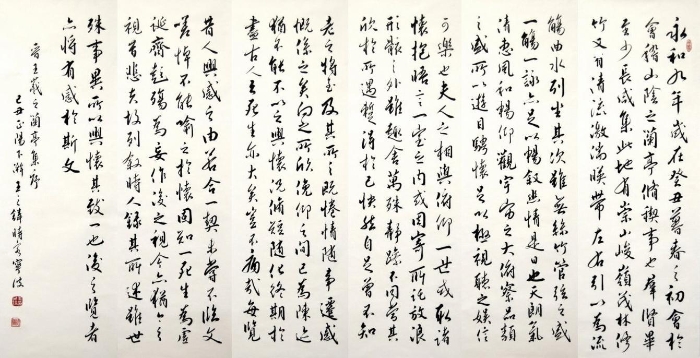 永和九年歲在癸丑暮春之初會於
會稽山陰之蘭亭脩稧事也羣賢畢
至少長咸集此地有崇山峻嶺茂林脩
竹又有清流激湍映帶左右引以為流
觴曲水列坐其次雖無絲竹管弦之盛
一觴一詠亦足以暢敘幽情是日也天朗氣
清惠風和暢仰觀宇宙之大俯察品類
之盛所以遊目騁懷足以極視聽之娛信
可樂也夫人之相與俯仰一世或取諸
懷抱晤言一室之內或因寄所託放浪
形骸之外雖趣舍萬殊靜躁不同當其
欣於所遇暫得於己快然自足曾不知
老之將至及其所之既倦情隨事遷感
慨係之矣向之所欣俛仰之間已為陳迹
猶不能不以之興懷況脩短隨化終期於
盡古人云死生亦大矣豈不痛哉每覽
昔人興感之由若合一契未嘗不臨文
嗟悼不能喻之於懷固知一死生為虛
誕齊彭殤為妄作後之視今亦猶今之
視昔悲夫故列敘時人錄其所述雖世
殊事異所以興懷其致一也後之覽者
亦將有感於斯文
晉王羲之蘭亭集序
己丑正陽下澣王之鋒時客寧波